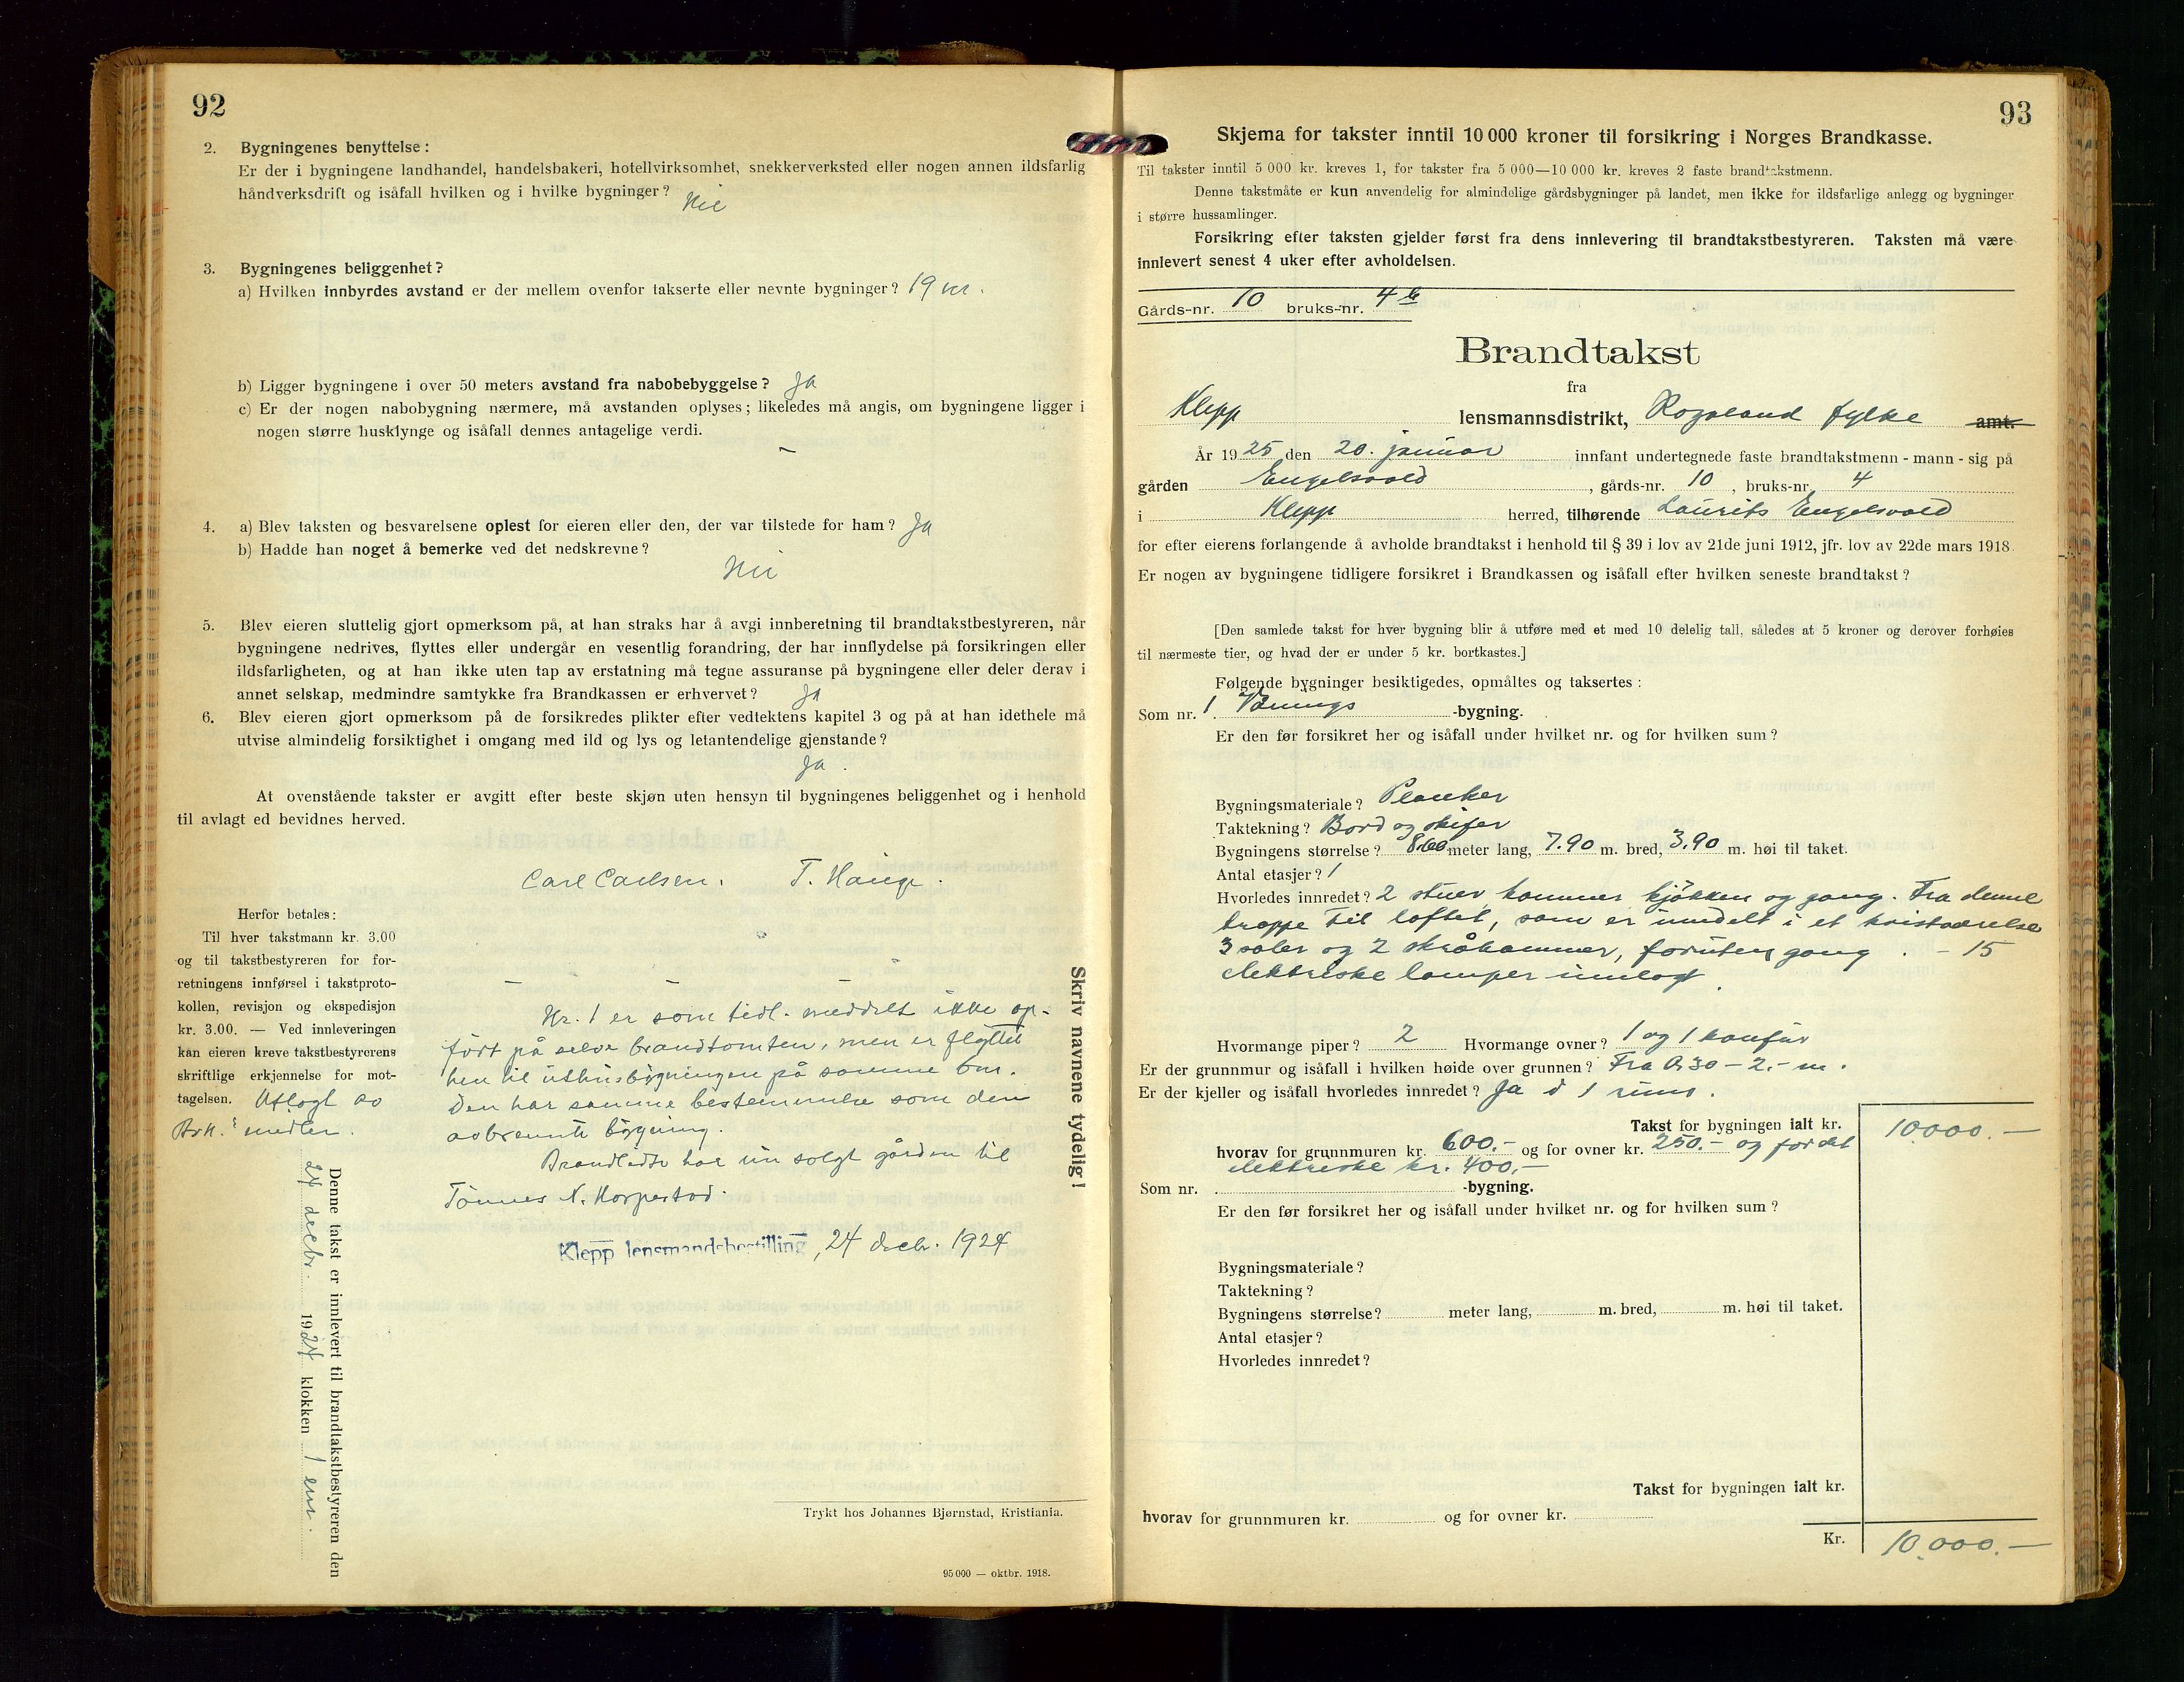 92
2. Bygningenes benyttelse:
Er der i bygningene landhandel, handelsbakeri, hotellvirksomhet, snekkerverksted eller nogen annen ildsfarlig
håndverksdrift og isåfall hvilken og i hvilke bygninger? Nei
3. Bygningenes beliggenhet?
a) Hvilken innbyrdes avstand er der mellem ovenfor takserte eller nevnte bygninger? 19 m.
b) Ligger bygningene i over 50 meters avstand fra nabobebyggelse? Ja
c) Er der nogen nabobygning nærmere, må avstanden oplyses; likeledes må angis, om bygningene ligger i
nogen større husklynge og isåfall dennes antagelige verdi.
—
4. a) Blev taksten og besvarelsene oplest for eieren eller den, der var tilstede for ham? Ja
b) Hadde han noget å bemerke ved det nedskrevne?
Nei
5. Blev eieren sluttelig gjort opmerksom på, at han straks har å avgi innberetning til brandtakstbestyreren, når
bygningene nedrives, flyttes eller undergår en vesentlig forandring, der har innflydelse på forsikringen eller
ildsfarligheten, og at han ikke uten tap av erstatning må tegne assuranse på bygningene eller deler derav i
annet selskap, medmindre samtykke fra Brandkassen er erhvervet? Ja
6. Blev eieren gjort opmerksom på de forsikredes plikter efter vedtektens kapitel 3 og på at han idethele må
utvise almindelig forsiktighet i omgang med ild og lys og letantendelige gjenstande?
Ja.
At ovenstående takster er avgitt efter beste skjøn uten hensyn til bygningenes beliggenhet og i henhold
til avlagt ed bevidnes herved.
Carl Carlsen. T. Hauge.
Herfor betales:
Til hver takstmann kr. 3.00
og til takstbestyreren for for-
retningens innførsel i takstproto-
kollen, revisjon og ekspedisjon
kr. 3.00. — Ved innleveringen
kan eieren kreve takstbestyrerens
skriftlige erkjennelse for mot-
tagelsen.
— — —
Nr. 1 er som tidl. meddelt ikke op-
ført på selve brandtomten, men er flyttet
hen til uthusbygningen på samme bnr.
Den har samme bestemmelse som den
avbrennte bygning.
Brandlidte har nu solgt gården til
Tønnes N. Horpestad.
Klepp lensmandsbestilling, 24 decbr. 1924
Skriv navnene tydelig!
Denne takst er innlevert til brandtakstbestyreren den
24 decbr. 1924 klokken 1 em.
Trykt hos Johannes Bjørnstad, Kristiania.
95 000 — oktbr. 1918.
93
Skjema for takster inntil 10 000 kroner til forsikring i Norges Brandkasse.
Til takster inntil 5 000 kr. kreves 1, for takster fra 5 000—10 000 kr. kreves 2 faste brandtakstmenn.
Denne takstmåte er kun anvendelig for almindelige gårdsbygninger på landet, men ikke for ildsfarlige anlegg og bygninger
i større hussamlinger.
Forsikring efter taksten gjelder først fra dens innlevering til brandtakstbestyreren. Taksten må være
innlevert senest 4 uker efter avholdelsen.
Gårds-nr. 10 bruks-nr. 4
Brandtakst
fra
Klepp lensmannsdistrikt, Rogaland fylke amt.
År 1925 den 20. januar innfant undertegnede faste brandtakstmenn - mann - sig på
gården Engelsvold, gårds-nr. 10, bruks-nr. 4
i Klepp herred, tilhørende Laurits Engelsvold
for efter eierens forlangende å avholde brandtakst i henhold til § 39 i lov av 21de juni 1912, jfr. lov av 22de mars 1918.
Er nogen av bygningene tidligere forsikret i Brandkassen og isåfall efter hvilken seneste brandtakst?
[Den samlede takst for hver bygning blir å utføre med et med 10 delelig tall, således at 5 kroner og derover forhøies
til nærmeste tier, og hvad der er under 5 kr. bortkastes.]
Følgende bygninger besiktigedes, opmåltes og taksertes:
Som nr. 1 Vånings -bygning.
Er den før forsikret her og isåfall under hvilket nr. og for hvilken sum?
Bygningsmateriale? Planker
Taktekning? Bord og skifer
Bygningens størrelse? 8.60 meter lang, 7.90 m. bred, 3.90 m. høi til taket.
Antal etasjer? 1
Hvorledes innredet? 2 stuer kammer kjøkken og gang. Fra denne
trappe til loftet, som er inndelt i et kvistværelse
3 saler og 2 skråkammer, foruten gang. - 15
elektriske lamper innlagt.
Hvormange piper? 2 Hvormange ovner? 1 og 1 komfur
Er der grunnmur og isåfall i hvilken høide over grunnen? Fra 0,30 - 2.- m.
Er der kjeller og isåfall hvorledes innredet? Ja i 1 rum.
Takst for bygningen ialt kr. 10.000.—
hvorav for grunnmuren kr. 600.- og for ovner kr. 250.- og for det
elektriske kr. 400.—
Som nr. -bygning.
Er den før forsikret her og isåfall under hvilket nr. og for hvilken sum?
Bygningsmateriale?
Taktekning?
Bygningens størrelse? meter lang, m. bred, m. høi til taket.
Antal etasjer?
Hvorledes innredet?
Takst for bygningen ialt kr.
hvorav for grunnmuren kr. og for ovner kr.
Kr. 10.000.—